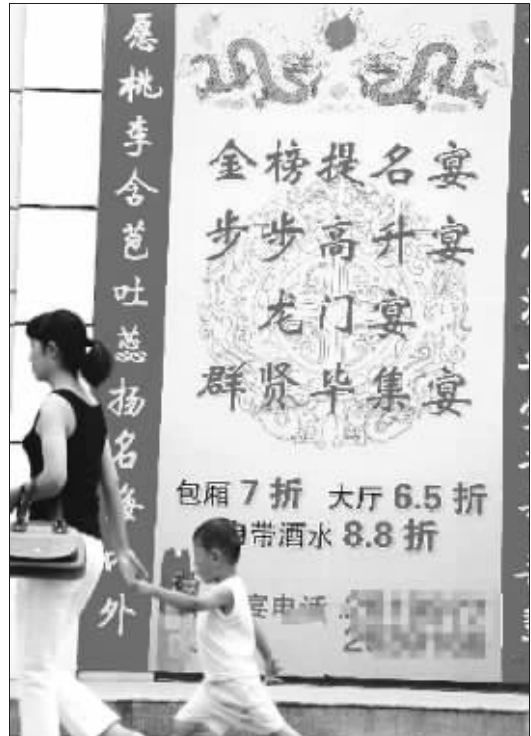 愿桃李含苞吐蕊扬名海内外
金榜提名宴
步步高升宴
龙门宴
群贤毕集宴
包厢 7 折 大厅 6.5 折
自带酒水 8.8 折
宴电话